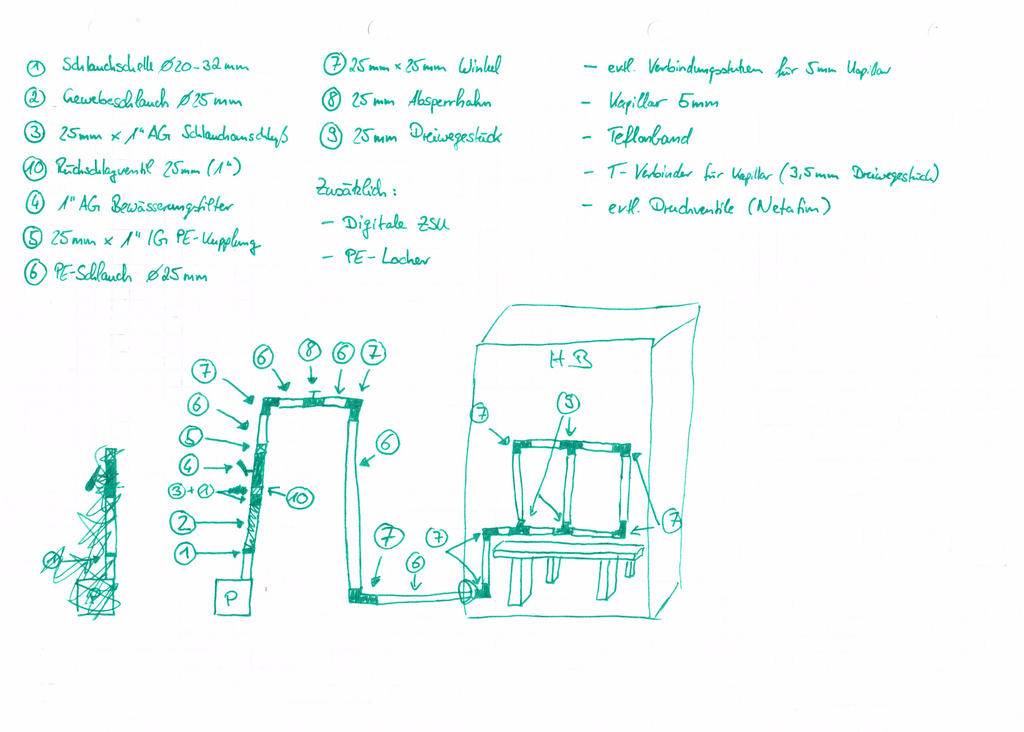 ① Schlauchschelle Ø20-32mm
② Gewebeschlauch Ø25mm
③ 25mm x 1" AG Schlauchanschluß
⑩ Rückschlagventil 25mm (1")
④ 1" AG Bewässerungsfilter
⑤ 25mm x 1" IG PE-Kupplung
⑥ PE-Schlauch Ø25mm
⑦ 25mm x 25mm Winkel
⑧ 25mm Absperrhahn
⑨ 25mm Dreiwegestück
Zusätzlich:
- Digitale ZSU
- PE-Locher
- evtl. Verbindungsstutzen für 5mm Kapillar
- Kapillar 5mm
- Teflonband
- T-Verbinder für Kapillar (3,5mm Dreiwegestück)
- evtl. Druckventile (Netafim)
⑥ ⑧ ⑥ ⑦
⑦
⑥
⑤
④
③+①
⑩
②
①
P
⑥
⑦
⑥
⑦
H.B
⑨
⑦
⑦
①
P